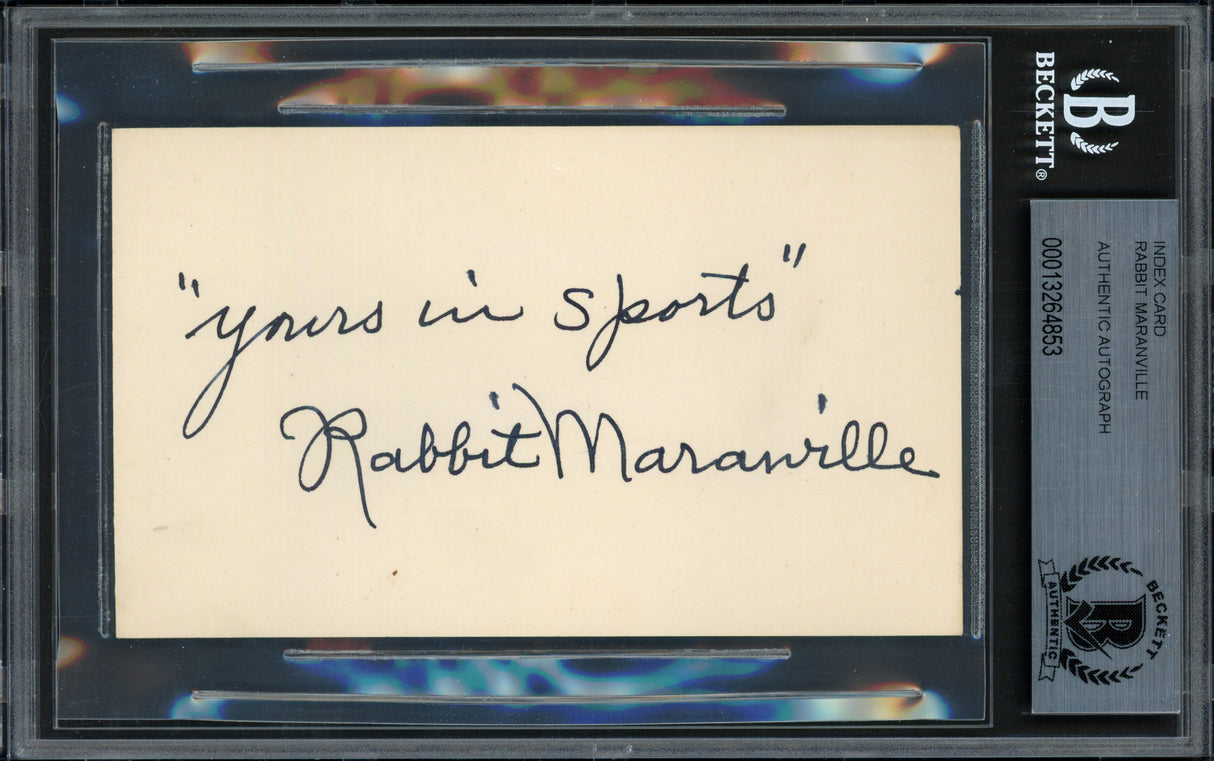 "yours in sports"
Rabbit Maranville
B
BECKETT®
INDEX CARD
RABBIT MARANVILLE
AUTHENTIC AUTOGRAPH
00013264853
BECKETT
B
AUTHENTIC